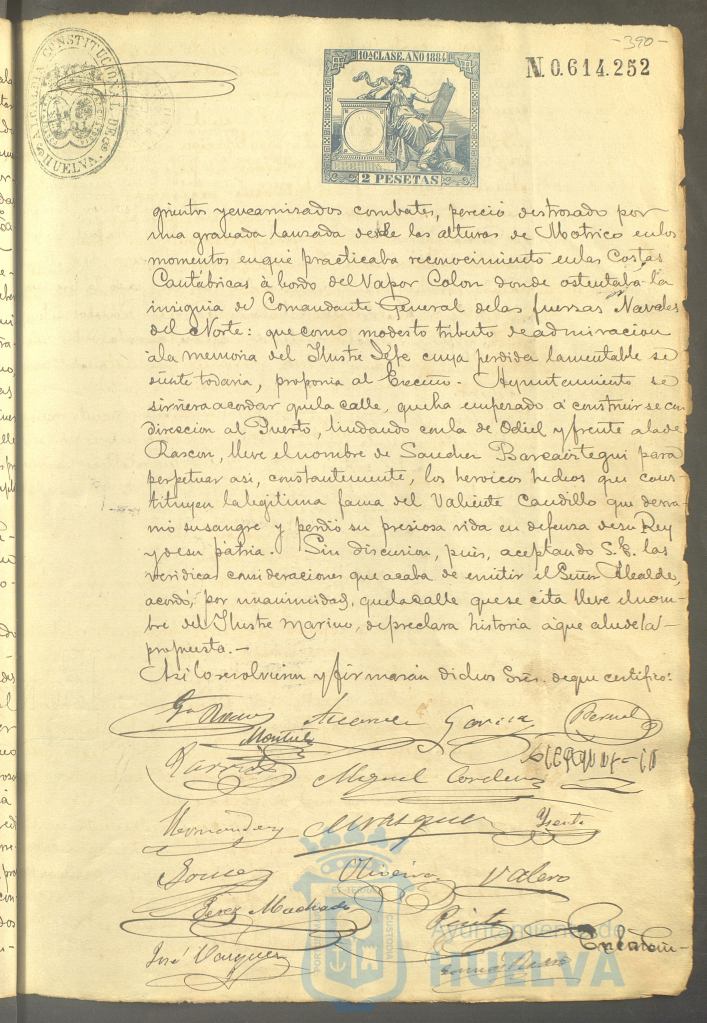 -390-
ALCALDIA CONSTITUCIONAL DE HUELVA.
10ª CLASE. AÑO 1884
2 PESETAS
N. 0.614.252
grientos y encarnizados combates, pereció destrozado por
una granada lanzada desde las alturas de Motrico en los
momentos en que practicaba reconocimiento en las Costas
Cantábricas á bordo del Vapor Colon donde ostentaba la
insignia de Comandante General de las fuerzas Navales
del Norte: que como modesto tributo de admiracion
á la memoria del Ilustre Jefe cuya perdida lamentable se
siente todavia, proponia al Excmo. Ayuntamiento se
sirviera acordar que la calle, que ha empesado á construirse con
direccion al Puerto, lindando con la de Odiel y frente á la de
Rascon, lleve el nombre de Sanchez Barcaiztegui para
perpetuar asi, constantemente, los heroicos hechos que cons-
tituyen la legitima fama del Valiente Caudillo que derra-
mó su sangre y perdió su presiosa vida en defensa de su Rey
y de su pátria. Sin discusion, pues, aceptando S. E. las
veridicas consideraciones que acaba de emitir el Señor Alcalde,
acordó, por unanimidad, que la calle que se cita lleve el nom-
bre del Ilustre Marino, de preclara historia á que alude la
propuesta.-
Asi lo resolvieron y firmarán dichos Sres. de que certifico:
Garcia Bernal
Montiel
Miguel Cordero
Hernandez Vazquez
Oliveira Valero
Perez Machado Pinto
José Vazquez
PORTUS MARIS ET TERRAE CUSTODIA
Ayuntamiento de
HUELVA